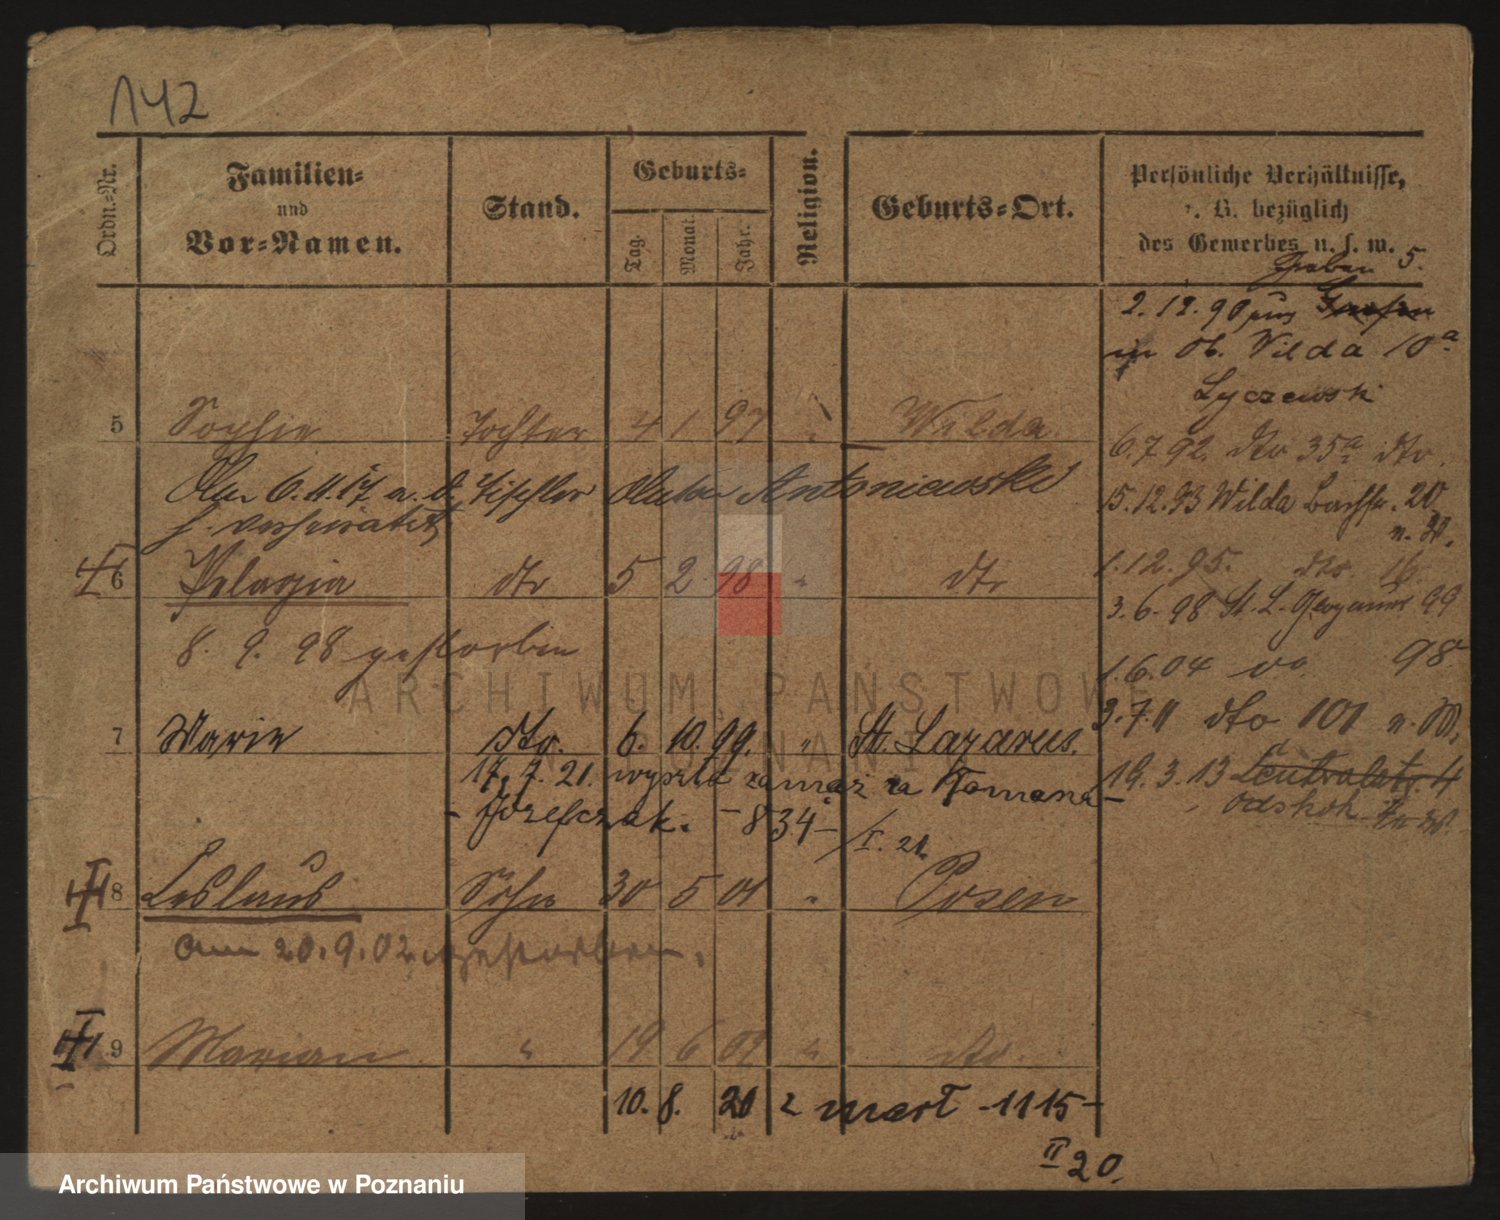 142
Ordn.-Nr.
Familien-
und
Vor-Namen.
Stand.
Geburts-
Tag.
Monat.
Jahr.
Religion.
Geburts-Ort.
Persönliche Verhältnisse,
z. B. bezüglich
des Gewerbes u. s. w.
Graben 5.
2.12.90 aus Gnesen
in Ob. Wilda 10a
Lyczewski
5 Sophie Tochter 4 1 97 Wilda
6.7.92. dto 35a dto.
Am 6.11.17 a. d. Tischler Antoniewski
verheiratet
15.12.93 Wilda Bachstr. 20
n. 20.
6 Pelagia dto 5 2 98 " dto
1.12.95. dto. 16.
3.6.98 St. L. 99
8. 9. 98 gestorben
1.6.04 do. 98
ARCHIWUM PAŃSTWOWE
W POZNANIU
3.7.11 dto 101 n. W.
7 Marie dto. 6. 10. 99. " St. Lazarus.
17.7.21. wyszła zamąż za Romana
19.3.13 Centralstr. 4
- Józefczak. - 834 - /I. 21.
8 Leslaus Sohn 30 5 01 " Posen
am 20.9.02 gestorben.
9 Marian " 19 6 09 " dto.
10. 8. 20 mart - 1115 -
II 20.
Archiwum Państwowe w Poznaniu